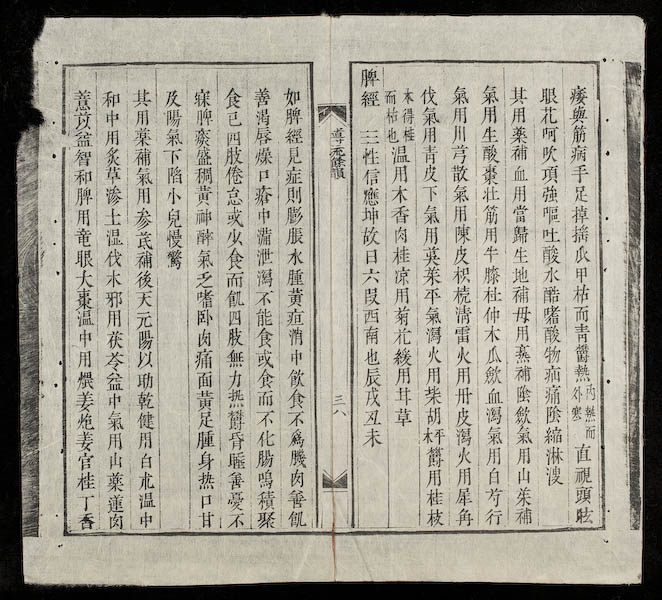 痿與筋病手足掉搖瓜甲枯而青欝熱內熱而外寒直視頭眩
眼花呵吹項強嘔吐酸水酷嗜酸物疝痛陰縮淋溲
其用藥補血用當歸生地補母用熹補陰歛氣用山茱補
氣用生酸棗壯筋用牛膝杜仲木瓜歛血瀉氣用白芍行
氣用川芎散氣用陳皮枳梡清雷火用丹皮瀉火用犀角
伐氣用青皮下氣用萸茱平氣瀉火用柴胡枰欝用桂枝
木得桂而枯也溫用木香肉桂凉用菊花緩用甘草
脾經 三性信應坤故日六叚西南也辰戌丑未
尊
三八
如脾經見症則膨脹水腫黃疸消中飲食不爲饑肉善飢
善渴唇燥口瘡中滿泄瀉不能食或食而不化腸鳴積聚
食已四肢倦怠或少食而飢四肢無力热欝昏睡善憂不
寐脾痰盛稠黃神醉氣乏嗜卧肉痛面黃足腫身热口甘
及陽氣下陷小兒慢驚
其用藥補氣用参芪補後天元陽以助乾健用白朮溫中
和中用炙草滲土濕伐木邪用茯苓益中氣用山藥蓮肉
薏苡益智和脾用竜眼大棗溫中用煨姜炮姜官桂丁香